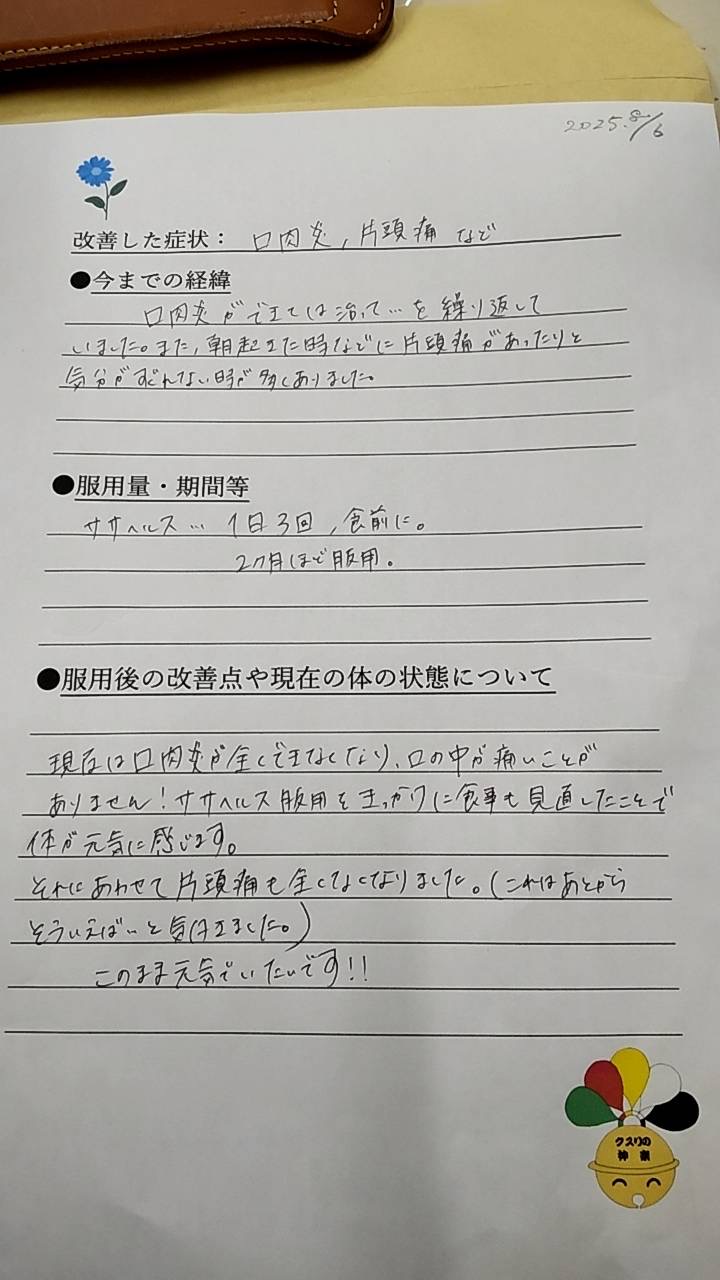 2025.8/6
改善した症状： 口肉炎，片頭痛 など
●今までの経緯
口肉炎ができては治って…を繰り返して
いました。また，朝起きた時などに片頭痛があったりと
気分がすぐれない時が多くありました。
●服用量・期間等
ササヘルス… 1日3回，食前に。
2ヶ月ほど服用。
●服用後の改善点や現在の体の状態について
現在は口肉炎が全くできなくなり、口の中が痛いことが
ありません！ササヘルス服用をきっかけに食事も見直したことで
体が元気に感じます。
それにあわせて片頭痛も全くなくなりました。(これはあとから
そういえば…と気付きました。)
このまま元気でいたいです!!
クスリの
神京